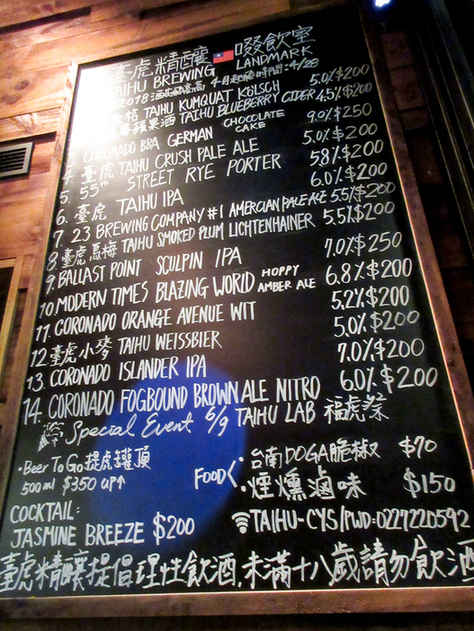 臺虎精釀 🇹🇼 啜飲室
TAIHU BREWING LANDMARK
TAIHU KUMQUAT KÖLSCH 5.0% $200
蘋果酒 TAIHU BLUEBERRY CIDER 4.5% $200
3. CORONADO BBA GERMAN CHOCOLATE CAKE $250
4. 臺虎 TAIHU CRUSH PALE ALE 5.0% $200
5. 55th STREET RYE PORTER 5.8% $200
6. 臺虎 TAIHU IPA 6.0% $200
7. 23 BREWING COMPANY #1 AMERCIAN PALE ALE 5.5% $200
8. 臺虎烏梅 TAIHU SMOKED PLUM LICHTENHAINER 5.5% $200
9. BALLAST POINT SCULPIN IPA 7.0% $250
10. MODERN TIMES BLAZING WORLD HOPPY AMBER ALE 6.8% $200
11. CORONADO ORANGE AVENUE WIT 5.2% $200
12. 臺虎小麥 TAIHU WEISSBIER 5.0% $200
13. CORONADO ISLANDER IPA 7.0% $200
14. CORONADO FOGBOUND BROWN ALE NITRO 6.0% $200
Special Event 6/9 TAIHU LAB 福虎
·Beer To Go 提虎罐頂
500ml $350 up↑
FOOD
·台南DOGA脆椒 $70
·煙燻滷味 $150
COCKTAIL:
JASMINE BREEZE $200
TAIHU-CYS/PWD:0227220592
臺虎精釀提倡理性飲酒,未滿十八歲請勿飲酒